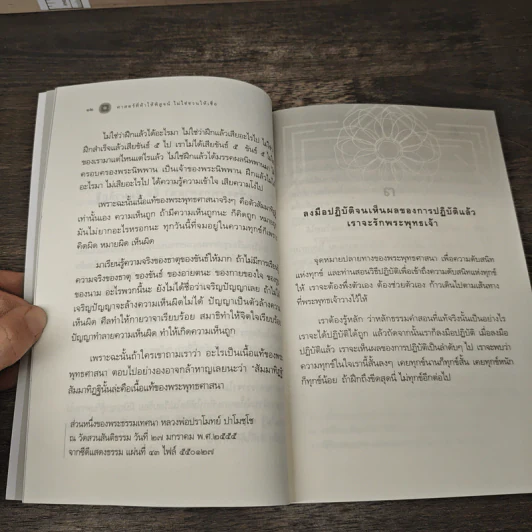 ศาสตร์ที่ท้าให้พิสูจน์ ไม่ใช่ชวนให้เชื่อ
ไม่ใช่ว่าฝึกแล้วได้อะไรมา ไม่ใช่ว่าฝึกแล้วเสียอะไรไป
ฝึกสำเร็จแล้วเสียขันธ์ ๕ ไป เราไม่ได้เสียขันธ์ ๕ ขันธ์ ๕
ของเรามาแต่ไหนแต่ไรแล้ว ไม่ใช่ฝึกแล้วได้มรรคผลนิพพานมา
ครอบครองพระนิพพาน เป็นเจ้าของพระนิพพาน ฝึกแล้วไม่ได้
อะไรมา ไม่เสียอะไรไป ได้ความรู้ความเข้าใจ เสียความโง่ไป
เพราะฉะนั้นเนื้อแท้ของพระพุทธศาสนาจริงๆ คือตัวสัมมาทิฏฐิ
เท่านั้นเอง ความเห็นถูก ถ้ามีความเห็นถูกนะ ก็คิดถูก
มันไม่ยากอะไรหรอกนะ ทุกวันนี้ที่จมอยู่ในความทุกข์ก็เพราะ
คิดผิด หมายผิด เห็นผิด
มาเรียนรู้ความจริงของธาตุของขันธ์ให้มาก ถ้าไม่มีการเรียนรู้
ความจริงของธาตุ ของขันธ์ ของอายตนะ ของกายของใจ
ของนาม อะไรพวกนี้นะ ยังไม่ได้ชื่อว่าเจริญปัญญาเลย ถ้าไม่ได้
เจริญปัญญาจะล้างความเห็นผิดไม่ได้ ปัญญาเป็นตัวล้างความ
เห็นผิด ศีลทำให้กายวาจาเรียบร้อย สมาธิทำให้จิตใจเรียบร้อย
ปัญญาทำลายความเห็นผิด ทำให้เกิดความเห็นถูก
เพราะฉะนั้นถ้าใครเขาถามเราว่า อะไรเป็นเนื้อแท้ของพระ
พุทธศาสนา ตอบไปอย่างองอาจกล้าหาญเลยนะว่า “สัมมาทิฏฐิ
สัมมาทิฏฐินั้นล่ะคือเนื้อแท้ของพระพุทธศาสนา
ส่วนหนึ่งของพระธรรมเทศนา หลวงพ่อปราโมทย์ ปาโมชฺโช
ณ วัดสวนสันติธรรม วันที่ ๒๗ มกราคม พ.ศ.๒๕๕๕
จากซีดีแสดงธรรม แผ่นที่ ๔๓ ไฟล์ ๕๕๐๑๒๗
ลงมือปฏิบัติจนเห็นผลของการปฏิบัติแล้ว
เราจะรักพระพุทธเจ้า
จุดหมายปลายทางของพระพุทธศาสนา เพื่อความดับสนิท
แห่งทุกข์ และท่านสอนวิธีปฏิบัติเพื่อเข้าถึงความดับสนิทแห่งทุกข์
ให้ เราจะต้องพึ่งตัวเอง ต้องช่วยตัวเอง ก้าวเดินไปตามเส้นทาง
ที่พระพุทธเจ้าวางไว้ให้
เราต้องรู้หลัก ว่าหลักธรรมคำสอนที่แท้จริงนั้นเป็นอย่างไร
เราจะได้ปฏิบัติได้ถูก แล้วถัดจากนั้นเราก็ลงมือปฏิบัติ เมื่อลงมือ
ปฏิบัติแล้ว เราจะเห็นผลของการปฏิบัติเป็นลำดับๆ ไป เราจะพบว่า
ความทุกข์ในใจเรานี้สั้นลงๆ เคยทุกข์นานก็ทุกข์สั้น เคยทุกข์หนัก
ก็ทุกข์น้อย ถ้าฝึกถึงขีดสุดนี่ ไม่ทุกข์อีกต่อไป